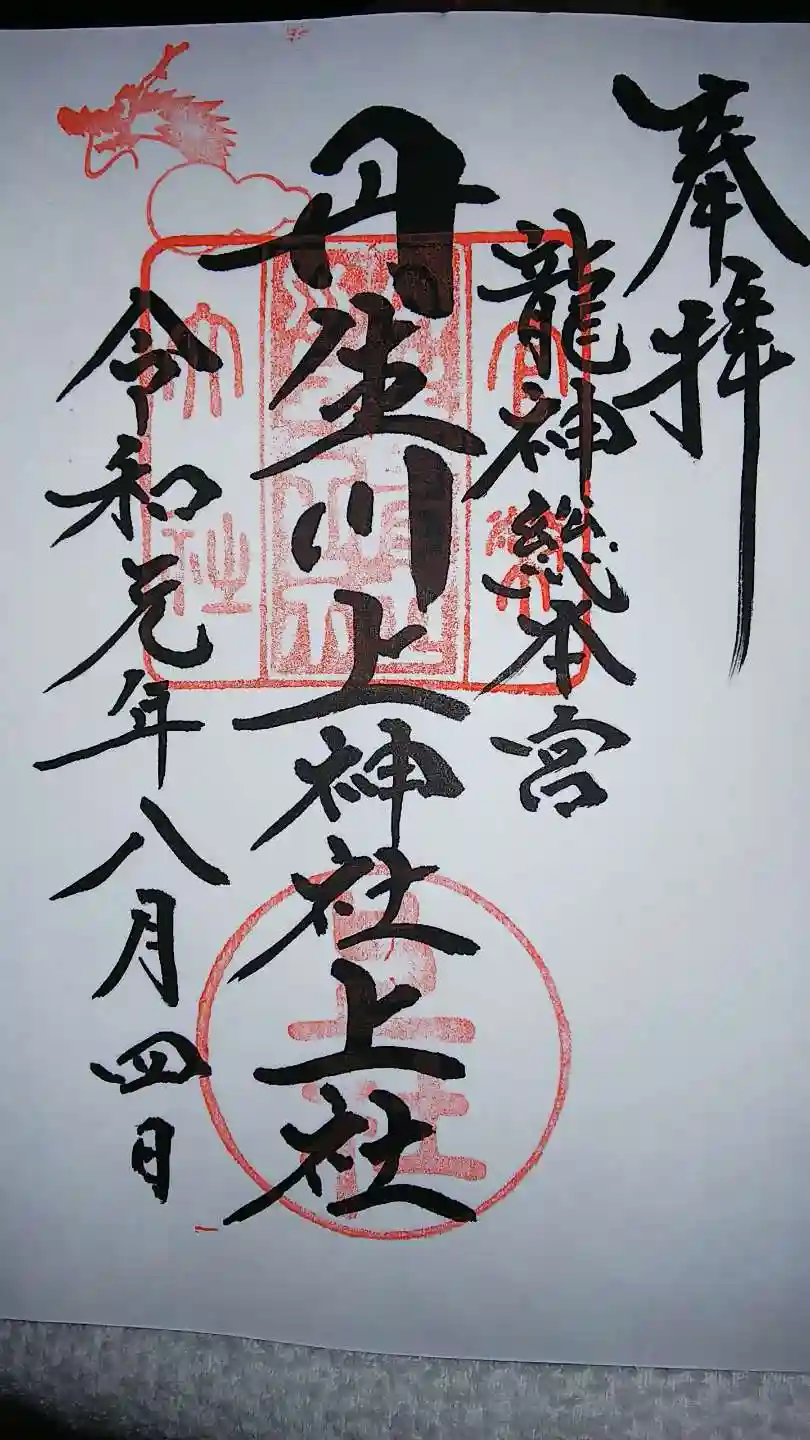 奉拝
龍神総本宮
丹生川上神社上社
令和元年八月四日